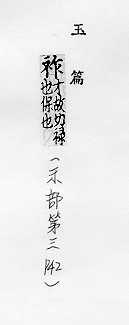 玉篇
祚才故切祿
也保也
(示部第三 P42)